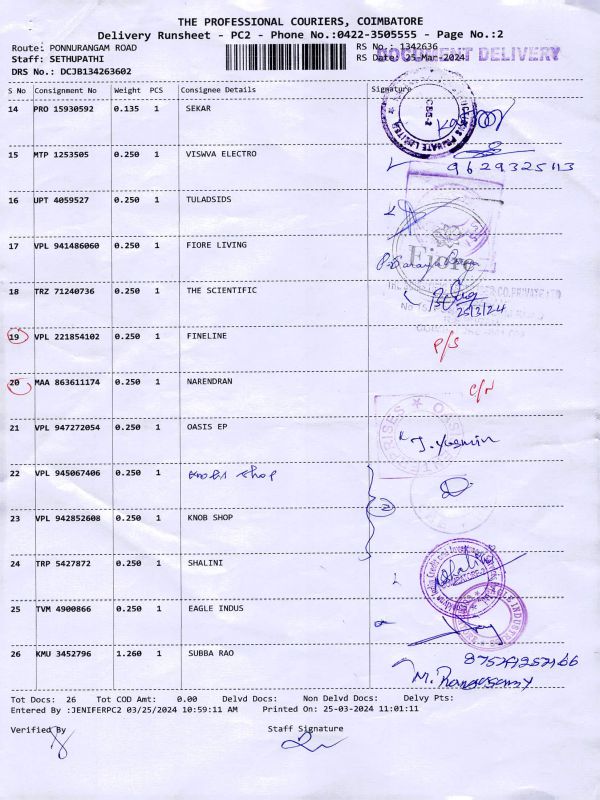 THE PROFESSIONAL COURIERS, COIMBATORE
Delivery Runsheet - PC2 - Phone No.:0422-3505555 - Page No.:2
Route: PONNURANGAM ROAD
RS No.: 1342636
DOCUMENT DELIVERY
Staff: SETHUPATHI
RS Date: 25-Mar-2024
DRS No.: DCJB134263602
S No Consignment No Weight PCS Consignee Details Signature
14 PRO 15930592 0.135 1 SEKAR
15 MTP 1253505 0.250 1 VISWVA ELECTRO
9629325113
16 UPT 4059527 0.250 1 TULADSIDS
17 VPL 941486060 0.250 1 FIORE LIVING
Fiore
18 TRZ 71240736 0.250 1 THE SCIENTIFIC
25/3/24
19 VPL 221854102 0.250 1 FINELINE
P/S
20 MAA 863611174 0.250 1 NARENDRAN
C/N
21 VPL 947272054 0.250 1 OASIS EP
J. Yasmin
22 VPL 945067406 0.250 1 Knobs shop
2
23 VPL 942852608 0.250 1 KNOB SHOP
24 TRP 5427872 0.250 1 SHALINI
25 TVM 4900866 0.250 1 EAGLE INDUS
26 KMU 3452796 1.260 1 SUBBA RAO
M. Rangasamy
Tot Docs: 26 Tot COD Amt: 0.00 Delvd Docs: Non Delvd Docs: Delvy Pts:
Entered By :JENIFERPC2 03/25/2024 10:59:11 AM Printed On: 25-03-2024 11:01:11
Verified By Staff Signature